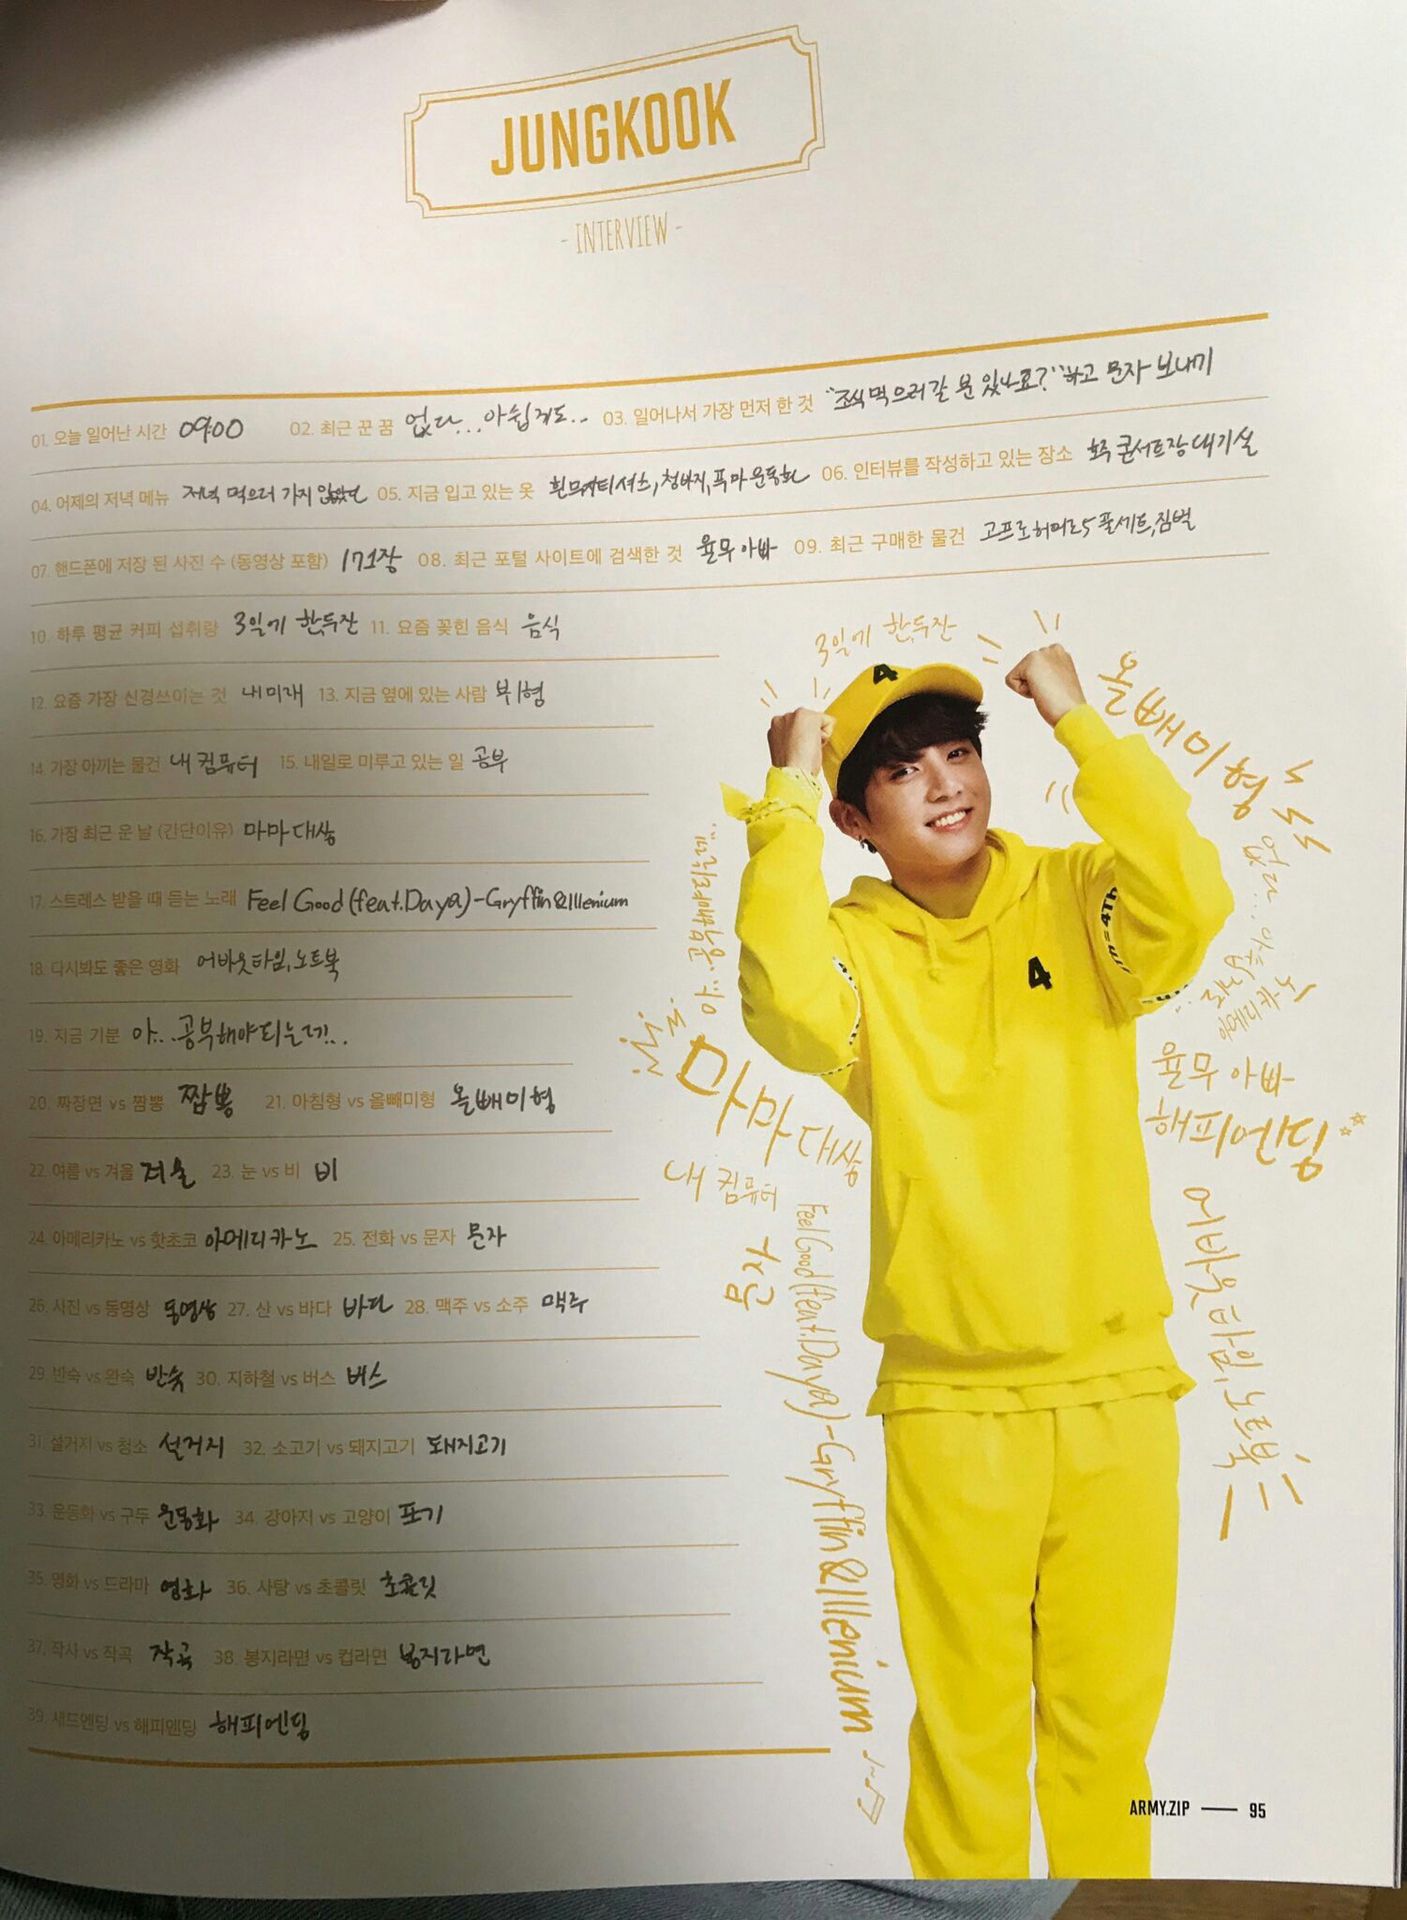 JUNGKOOK
- INTERVIEW -
01. 오늘 일어난 시간 09:00 02. 최근 꾼 꿈 없다... 아쉽게도.. 03. 일어나서 가장 먼저 한 것 "조식 먹으러 갈 분 있나요?" 하고 문자 보내기
04. 어제의 저녁 메뉴 저녁 먹으러 가지 않았다 05. 지금 입고 있는 옷 흰 티셔츠, 청바지, 푸마운동화 06. 인터뷰를 작성하고 있는 장소 호주 콘서트장 대기실
07. 핸드폰에 저장 된 사진 수 (동영상 포함) 171장 08. 최근 포털 사이트에 검색한 것 율무 아빠 09. 최근 구매한 물건 고프로 히어로5 풀세트, 짐벌
10. 하루 평균 커피 섭취량 3일에 한,두잔 11. 요즘 꽂힌 음식 음식
12. 요즘 가장 신경쓰이는 것 내 미래 13. 지금 옆에 있는 사람 뷔형
14. 가장 아끼는 물건 내 컴퓨터 15. 내일로 미루고 있는 일 공부
16. 가장 최근 운 날 (간단이유) 마마 대상
17. 스트레스 받을 때 듣는 노래 Feel Good (feat.Daya) - Gryffin & Illenium
18. 다시봐도 좋은 영화 어바웃타임, 노트북
19. 지금 기분 아... 공부해야되는데!..
20. 짜장면 vs 짬뽕 짬뽕 21. 아침형 vs 올빼미형 올빼미형
22. 여름 vs 겨울 겨울 23. 눈 vs 비 비
24. 아메리카노 vs 핫초코 아메리카노 25. 전화 vs 문자 문자
26. 사진 vs 동영상 동영상 27. 산 vs 바다 바다 28. 맥주 vs 소주 맥주
29. 반숙 vs 완숙 반숙 30. 지하철 vs 버스 버스
31. 설거지 vs 청소 설거지 32. 소고기 vs 돼지고기 돼지고기
33. 운동화 vs 구두 운동화 34. 강아지 vs 고양이 포기
35. 영화 vs 드라마 영화 36. 사탕 vs 초콜릿 초콜릿
37. 작사 vs 작곡 작곡 38. 봉지라면 vs 컵라면 봉지라면
39. 새드엔딩 vs 해피엔딩 해피엔딩
3일에 한,두잔
올빼미형
4
없다... 아쉽게도...
4
율무 아빠
해피엔딩
마마 대상
내 컴퓨터
Feel Good (feat.Daya) - Gryffin & Illenium
어바웃타임, 노트북
ARMY.ZIP — 95